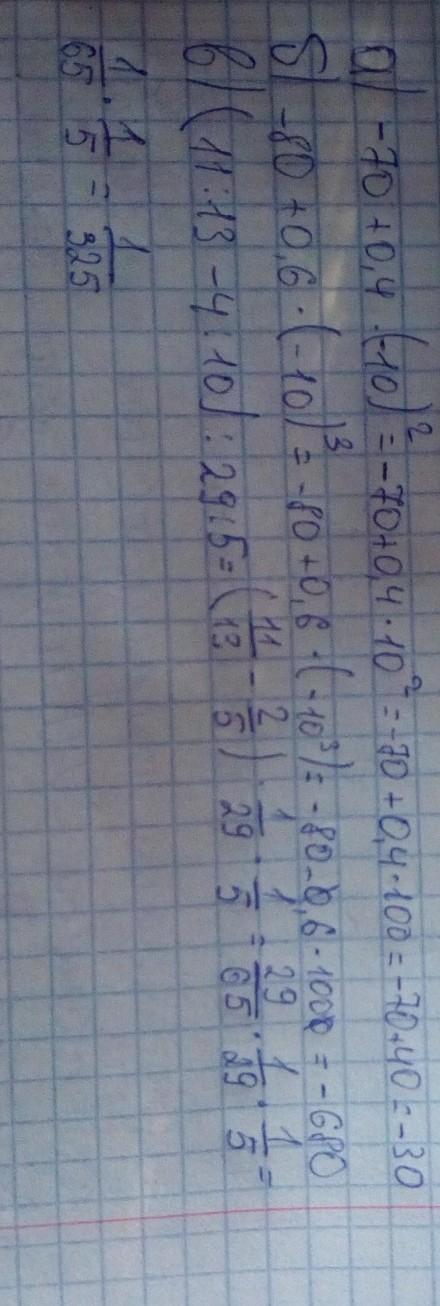 а) -70 + 0,4 · (-10)² = -70 + 0,4 · 10² = -70 + 0,4 · 100 = -70 + 40 = -30
б) -80 + 0,6 · (-10)³ = -80 + 0,6 · (-10³) = -80 - 0,6 · 1000 = -680
в) (11 : 13 - 4 : 10) : 29 : 5 = (11/13 - 2/5) · 1/29 · 1/5 = 29/65 · 1/29 · 1/5 =
1/65 · 1/5 = 1/325